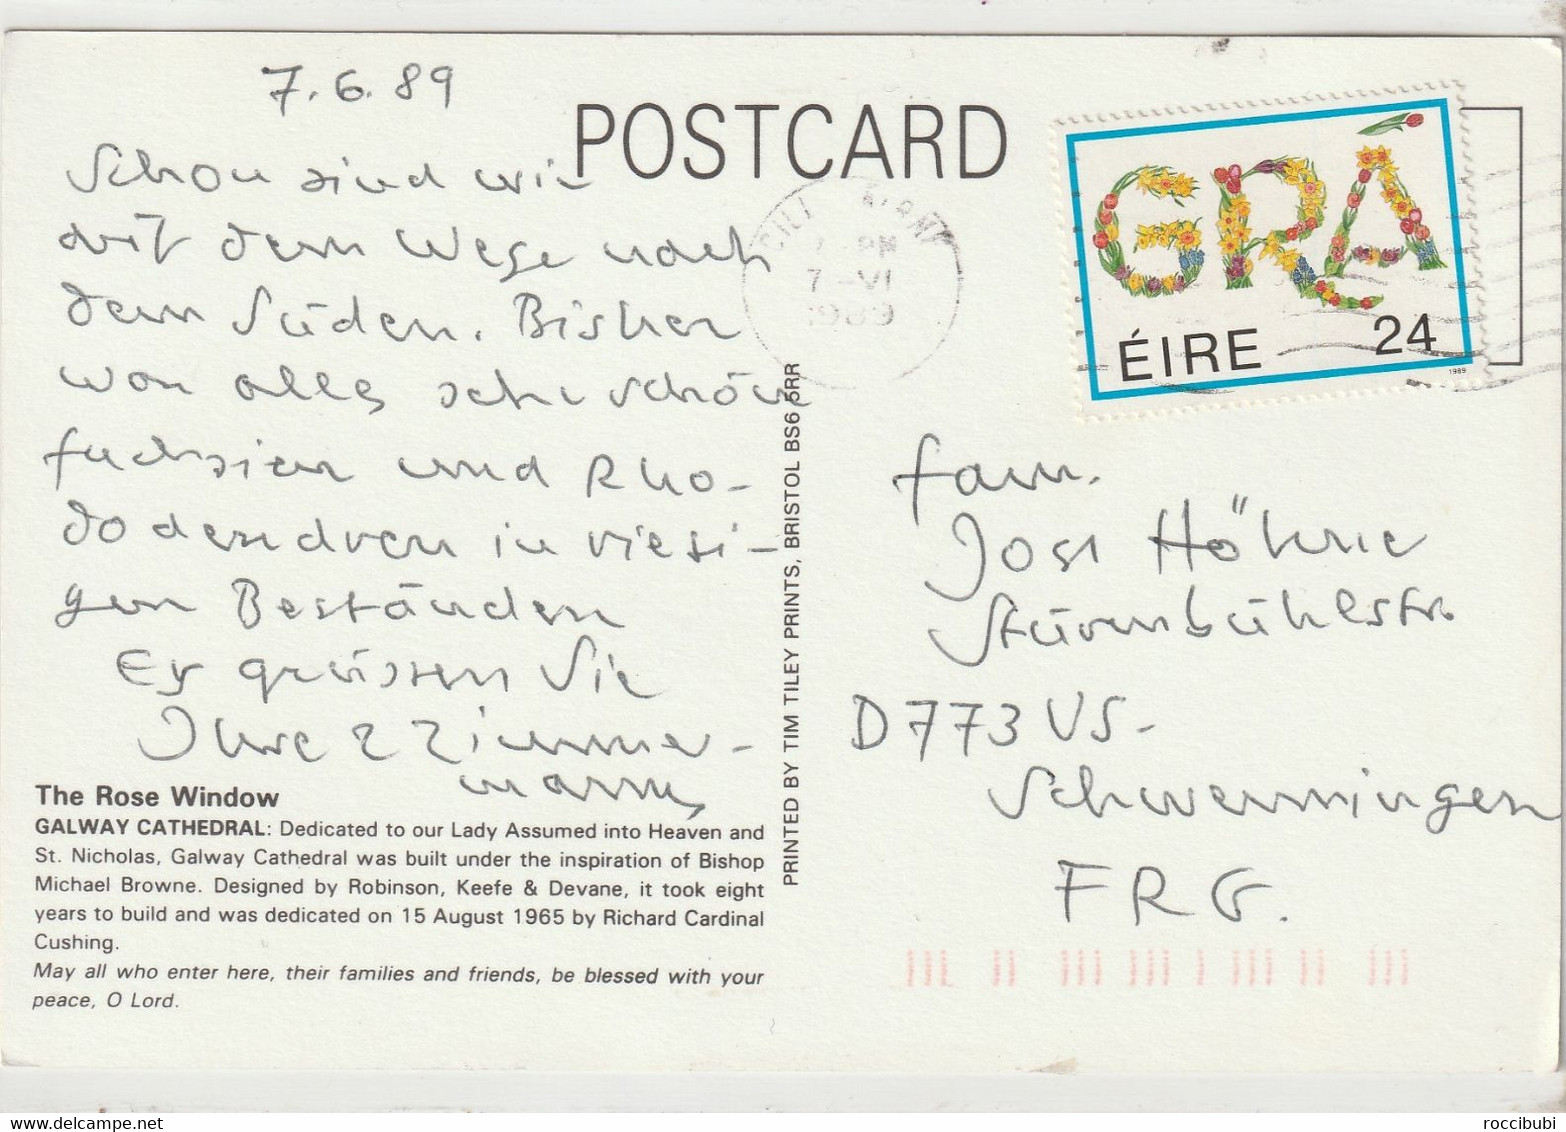 7.6.89
Schon sind wir
auf dem Wege nach
dem Süden. Bisher
war alles sehr schön
Fuchsien und Rho-
dodendren in riesi-
gen Beständen
Es grüssen Sie
Ihre 2 Zimmer-
manns
The Rose Window
GALWAY CATHEDRAL: Dedicated to our Lady Assumed into Heaven and
St. Nicholas, Galway Cathedral was built under the inspiration of Bishop
Michael Browne. Designed by Robinson, Keefe & Devane, it took eight
years to build and was dedicated on 15 August 1965 by Richard Cardinal
Cushing.
May all who enter here, their families and friends, be blessed with your
peace, O Lord.
POSTCARD
PRINTED BY TIM TILEY PRINTS, BRISTOL BS6 5RR
PM
7-VI
1989
GRÁ
ÉIRE 24
1989
Fam.
Jost Höhne
Stürenbühlstr.
D773 VS-
Schwenningen
FRG.
roccibubi